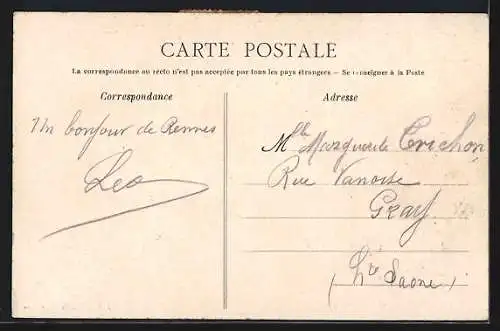 CARTE POSTALE
La correspondance au recto n'est pas acceptée par tous les pays étrangers — Se renseigner à la Poste
Correspondance
Adresse
Un bonjour de Rennes
Leo
Mlle Marguerite Crichon
Rue Vanoise
Gray
(Hte Saone)